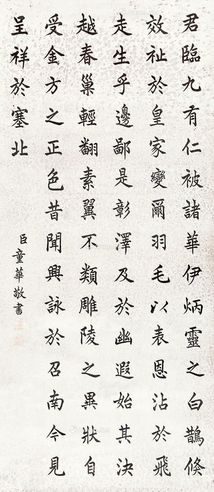 君臨九有仁被諸華伊炳靈之白鵲倏
效祉於皇家變爾羽毛以表恩沾於飛
走生乎邊鄙是彰澤及於幽遐始其決
越春巢輕翻素翼不類雕陵之異狀自
受金方之正色昔聞興詠於召南今見
呈祥於塞北
臣童華敬書